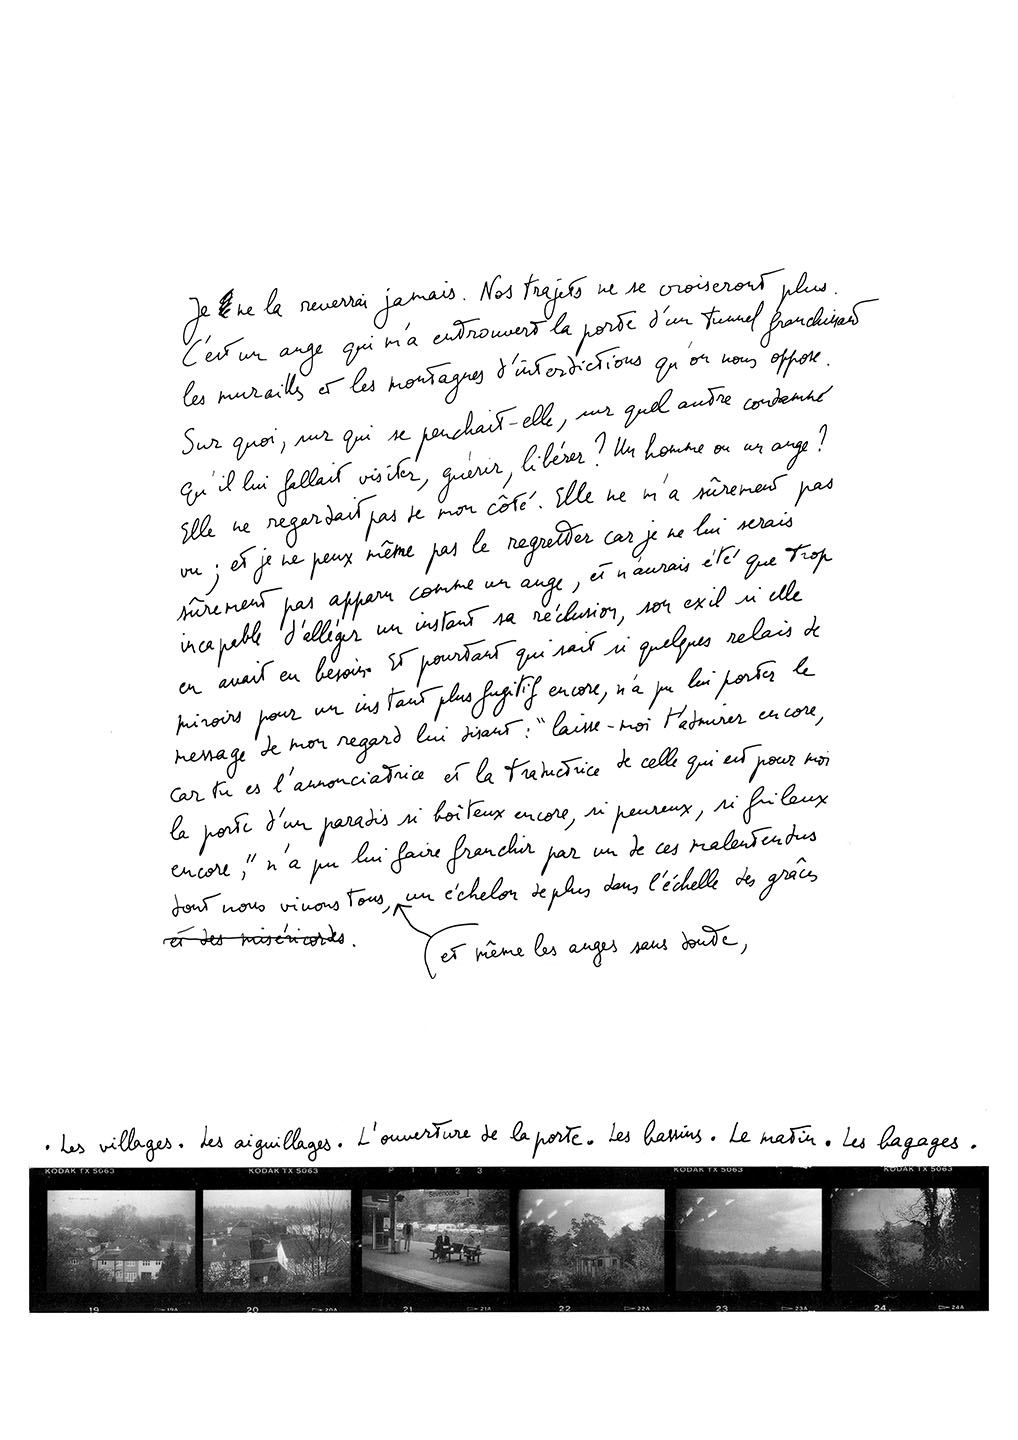 Je ne la reverrai jamais. Nos trajets ne se croiseront plus.
C'est un ange qui m'a entrouvert la porte d'un tunnel franchissant
les murailles et les montagnes d'interdictions qu'on nous oppose.
Sur quoi, sur qui se penchait-elle, sur quel autre condamné
qu'il lui fallait visiter, guérir, libérer? Un homme ou un ange?
Elle ne regardait pas de mon côté. Elle ne m'a sûrement pas
vu; et je ne peux même pas le regretter car je ne lui serais
sûrement pas apparu comme un ange, et n'aurais été que trop
incapable d'alléger un instant sa réclusion, son exil si elle
en avait eu besoin. Et pourtant qui sait si quelques relais de
miroirs pour un instant plus fugitif encore, n'a pu lui porter le
message de mon regard lui disant: "laisse-moi t'admirer encore,
car tu es l'annonciatrice et la traductrice de celle qui est pour moi
la porte d'un paradis si boîteux encore, si peureux, si frileux
encore," n'a pu lui faire franchir par un de ces malentendus
dont nous vivons tous, un échelon de plus dans l'échelle des grâces
et des miséricordes.
et même les anges sans doute,
. Les villages. Les aiguillages. L'ouverture de la porte. Les bassins. Le matin. Les bagages.
KODAK TX 5063 KODAK TX 5063 P 1 1 2 3 KODAK TX 5063 KODAK TX 5063
Sevenoaks
19 19A 20 20A 21 21A 22 22A 23 23A 24 24A